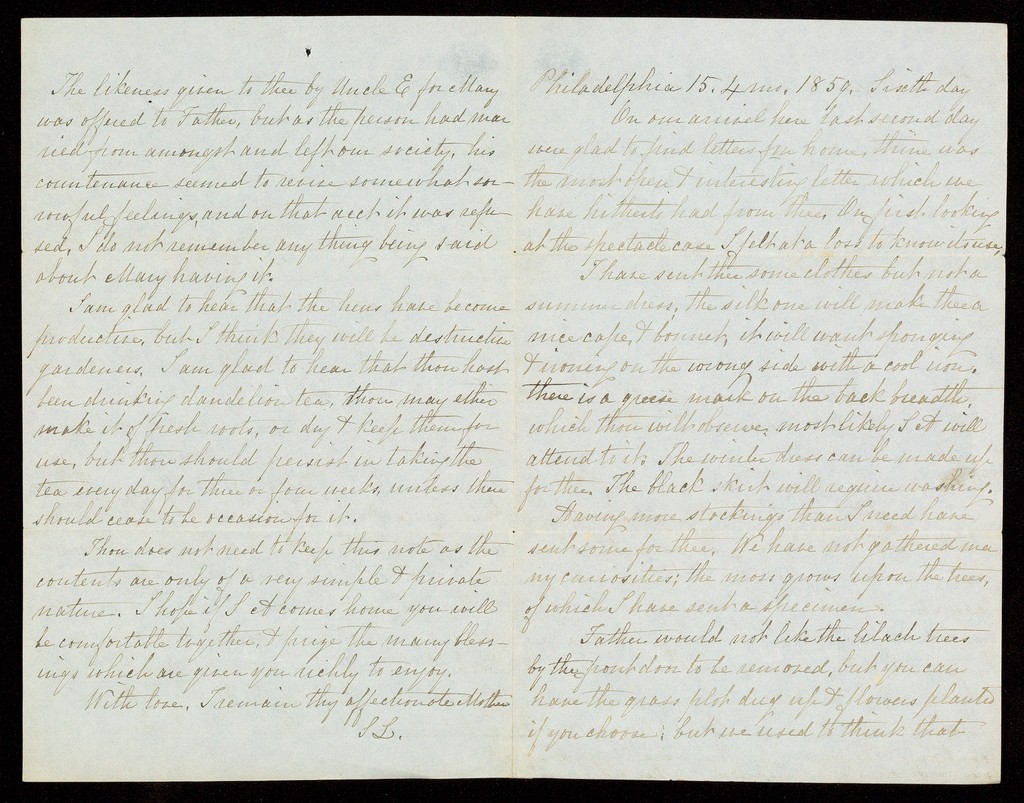 The likeness given to thee by Uncle E for Mary
was offered to Father, but as the person had mar
ried from amongst and left our society, his
countenance seemed to revive somewhat sor-
rowful feelings, and on that acct it was refu-
sed, I do not remember any thing being said
about Mary having it.
I am glad to hear that the hens have become
productive, but I think they will be destructive
gardeners. I am glad to hear that thou hast
been drinking dandelion tea, thou may either
make it of fresh roots, or dry & keep them for
use, but thou should persist in taking the
tea every day for three or four weeks, unless there
should cease to be occasion for it.
Thou does not need to keep this note as the
contents are only of a very simple & private
nature. I hope if S A comes home you will
be comfortable together, & prize the many bless-
ings which are given you richly to enjoy.
With love, I remain thy affectionate Mother
S L.
Philadelphia 15. 4 mo. 1859. Sixth day
On our arrival here last second day
were glad to find letters frm home, thine was
the most open & interesting letter which we
have hitherto had from thee. On first looking
at the spectacle case I felt at a loss to know its use,
I have sent thee some clothes but not a
summer dress, the silk one will make thee a
nice cape, & bonnet, it will want sponging
& ironing on the wrong side with a cool iron.
there is a grease mark on the back breadth
which thou wilt observe, most likely S A will
attend to it. The winter dress can be made up
for thee. The black skirt will require washing.
Having more stockings than I need have
sent some for thee. We have not gathered ma
ny curiosities; the moss grows upon the trees,
of which I have sent a specimen.
Father would not like the lilach trees
by the front door to be removed, but you can
have the grass plot dug up & flowers planted
if you choose; but we used to think that